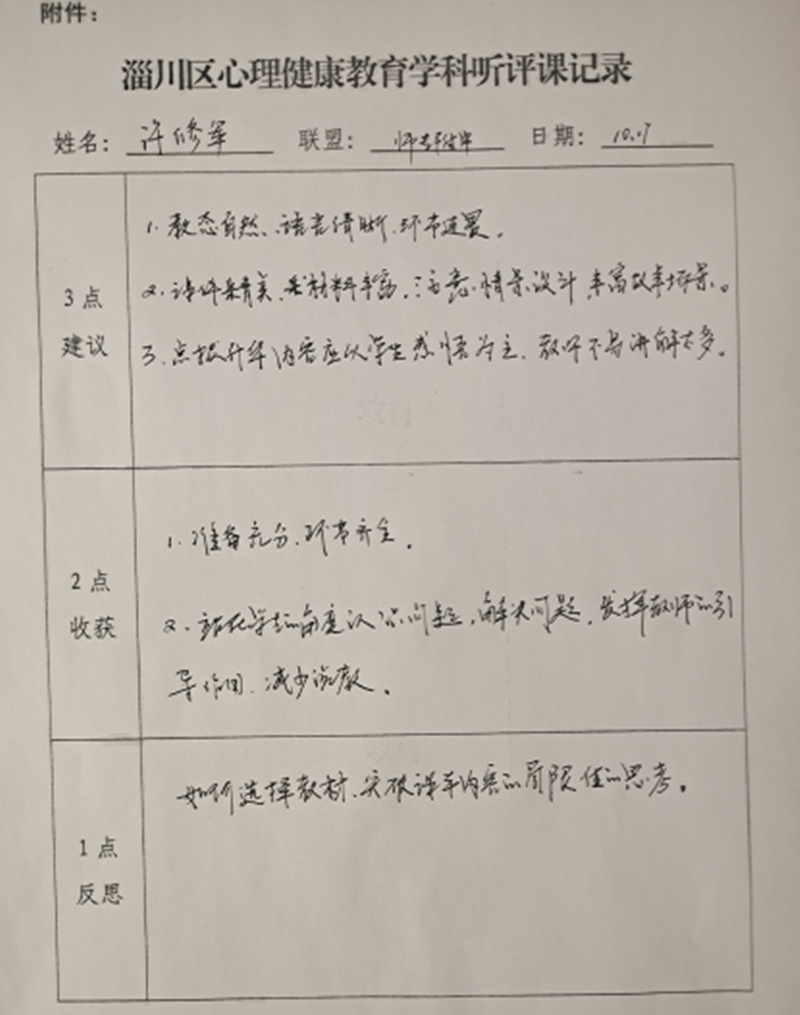 附件：
淄川区心理健康教育学科听评课记录
姓名： 许修军 联盟： 日期： 10.17
3点
建议
1. 教态自然、语言清晰、环节连贯。
2. 课件精美、素材料丰富，注意情景设计，丰富故事场景。
3. 点拨升华内容应以学生感悟为主，教师不易讲解太多。
2点
收获
1. 准备充分、环节齐全。
2. 站在学生的角度认识问题，解决问题，发挥教师的引
导作用，减少说教。
1点
反思
如何选择教材、突破课本内容的局限性的思考。